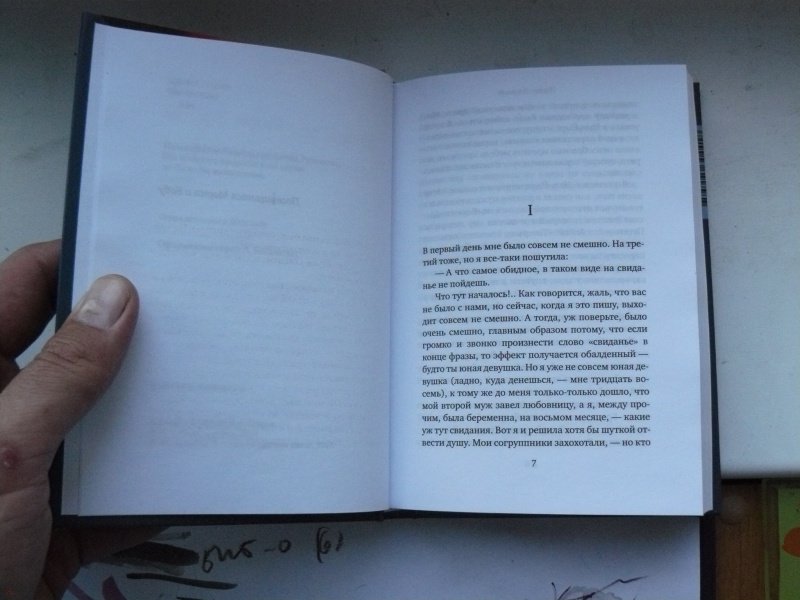 I
В первый день мне было совсем не смешно. На тре-
тий тоже, но я все-таки пошутила:
— А что самое обидное, в таком виде на свида-
нье не пойдешь.
Что тут началось!.. Как говорится, жаль, что вас
не было с нами, но сейчас, когда я это пишу, выхо-
дит совсем не смешно. А тогда, уж поверьте, было
очень смешно, главным образом потому, что если
громко и звонко произнести слово «свиданье» в
конце фразы, то эффект получается обалденный —
будто ты юная девушка. Но я уже не совсем юная де-
вушка (ладно, куда денешься, — мне тридцать во-
семь), к тому же до меня только-только дошло, что
мой второй муж завел любовницу, а я, между про-
чим, была беременна, на восьмом месяце, — какие
уж тут свидания. Вот я и решила хотя бы шуткой от-
вести душу. Мои согруппники захохотали, — но кто
7